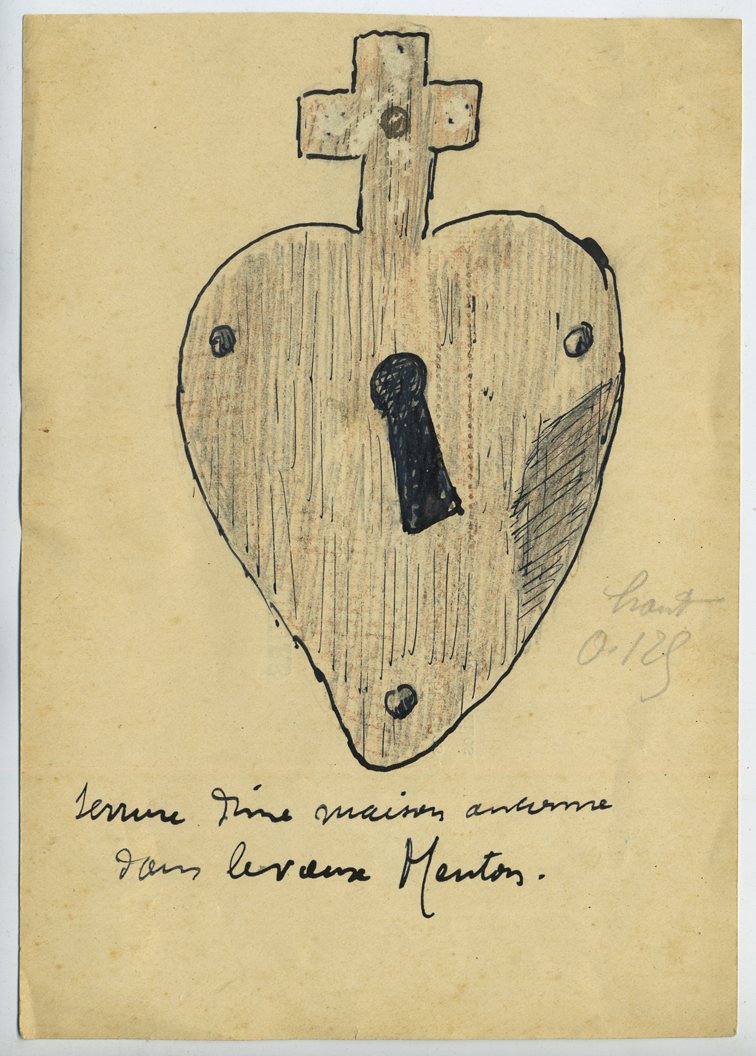 haut
0.125
Serrure d'une maison ancienne
dans le vieux Menton.